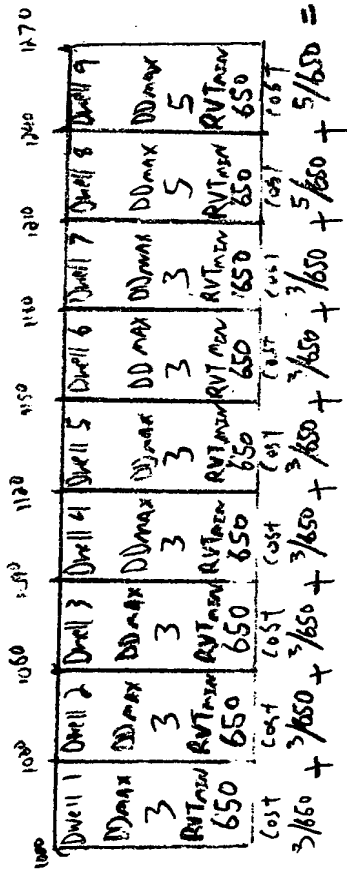 1000 1030 1060 1090 1120 1150 1180 1210 1240 1270
Dwell 1 Dwell 2 Dwell 3 Dwell 4 Dwell 5 Dwell 6 Dwell 7 Dwell 8 Dwell 9
DDMAX DDMAX DDMAX DDMAX DDMAX DDMAX DDMAX DDMAX DDMAX
3 3 3 3 3 3 3 5 5
RVTMIN RVTMIN RVTMIN RVTMIN RVTMIN RVTMIN RVTMIN RVTMIN RVTMIN
650 650 650 650 650 650 650 650 650
Cost Cost Cost Cost Cost Cost Cost Cost Cost
3/650 + 3/650 + 3/650 + 3/650 + 3/650 + 3/650 + 3/650 + 5/650 + 5/650 =